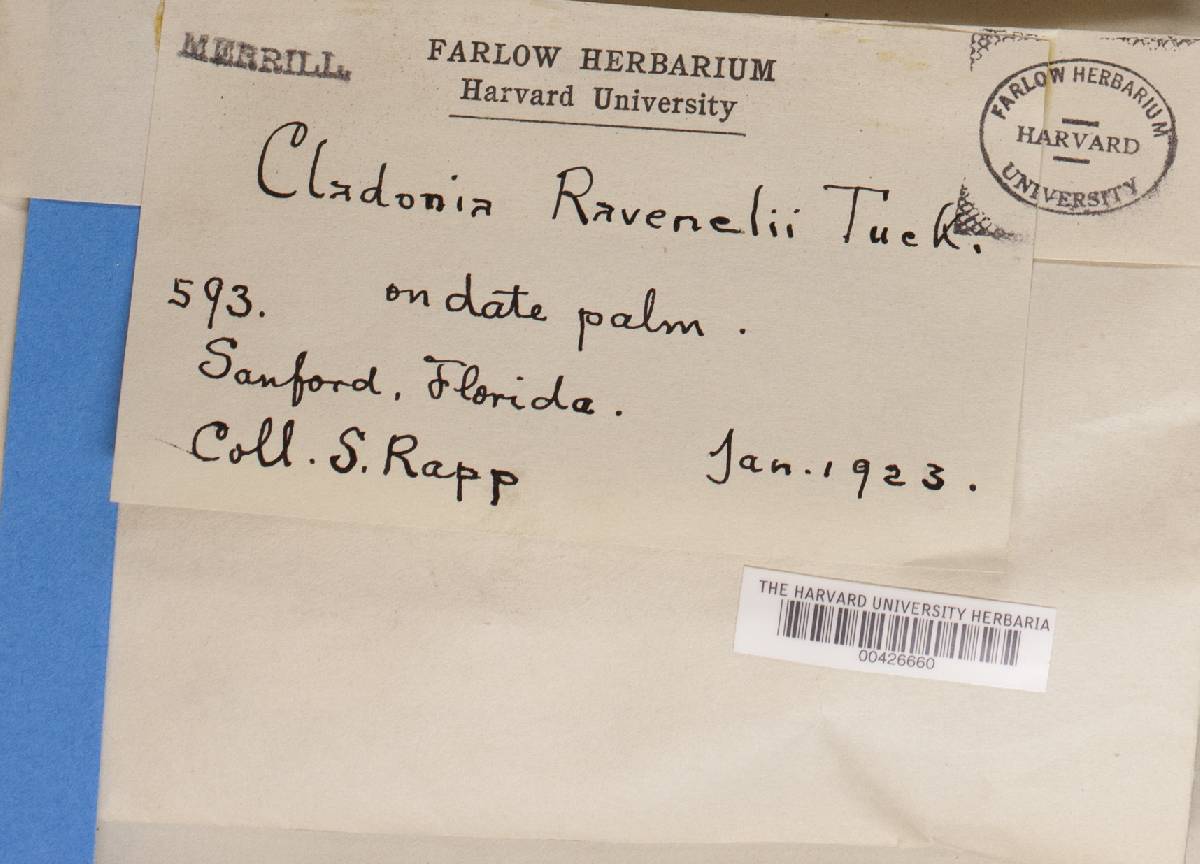 MERRILL.
FARLOW HERBARIUM
Harvard University
FARLOW HERBARIUM
HARVARD
UNIVERSITY
Cladonia Ravenelii Tuck.
593. on date palm.
Sanford, Florida.
Coll. S. Rapp Jan. 1923.
THE HARVARD UNIVERSITY HERBARIA
00426660